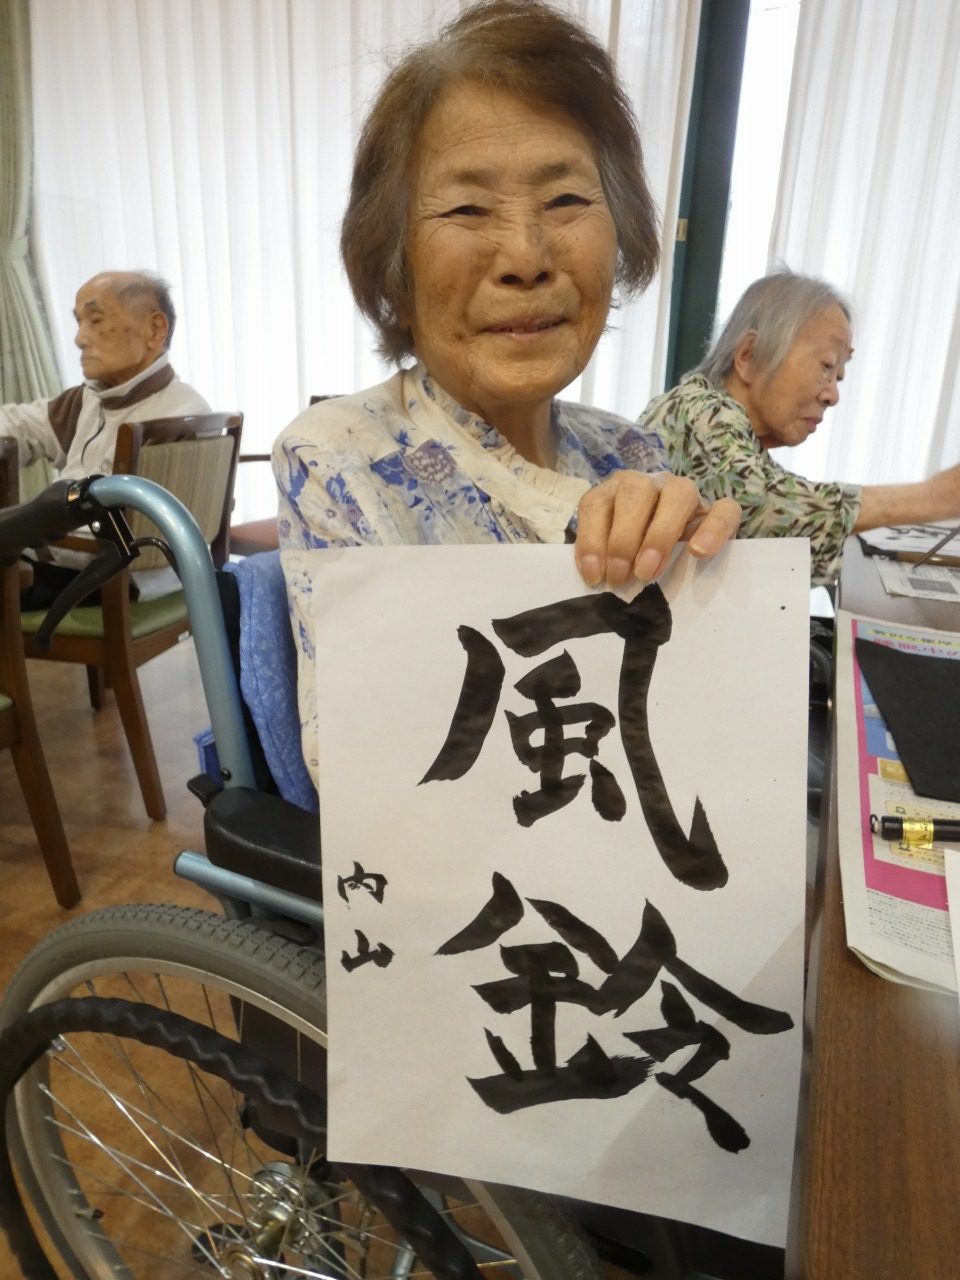 風鈴
内山